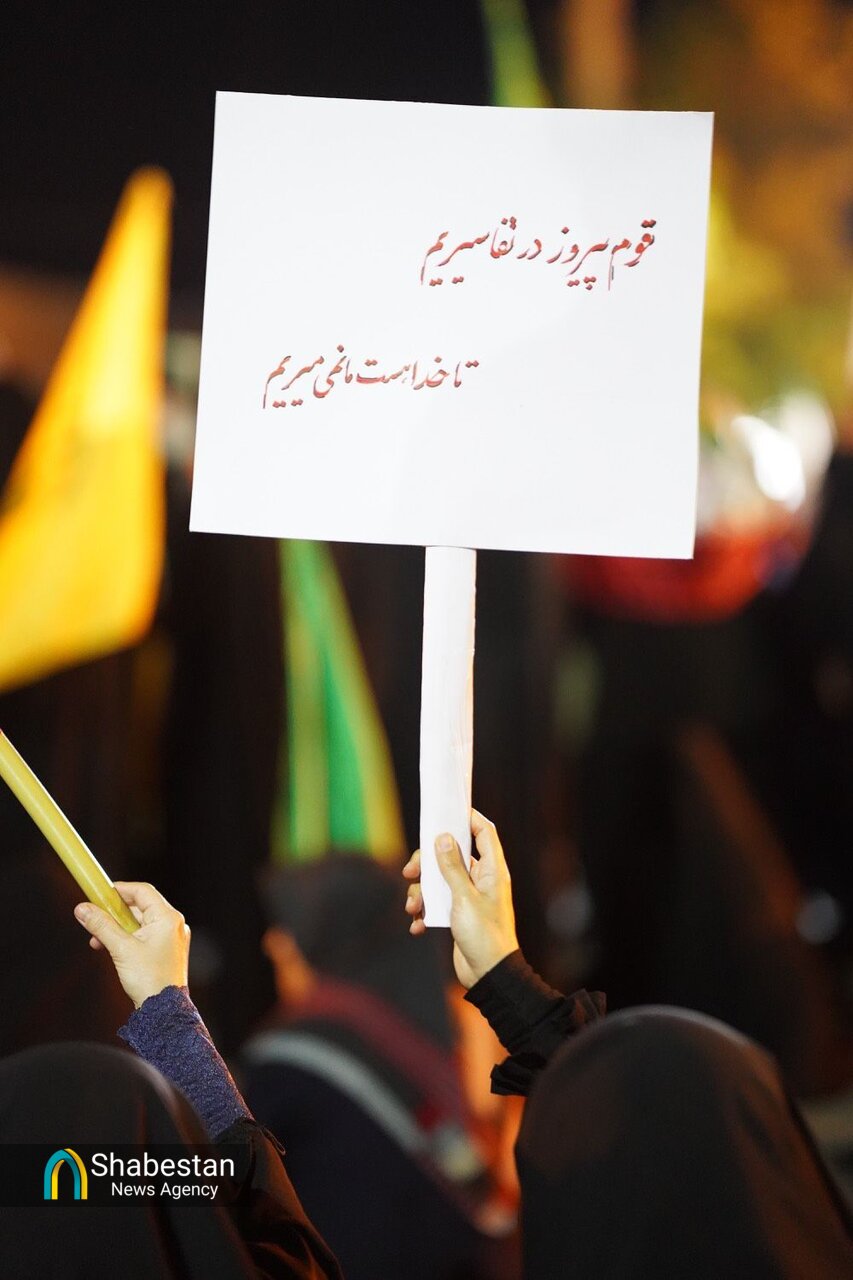 قوم پیروز در تفاسیریم
تا خدا هست ما نمی میریم
Shabestan
News Agency